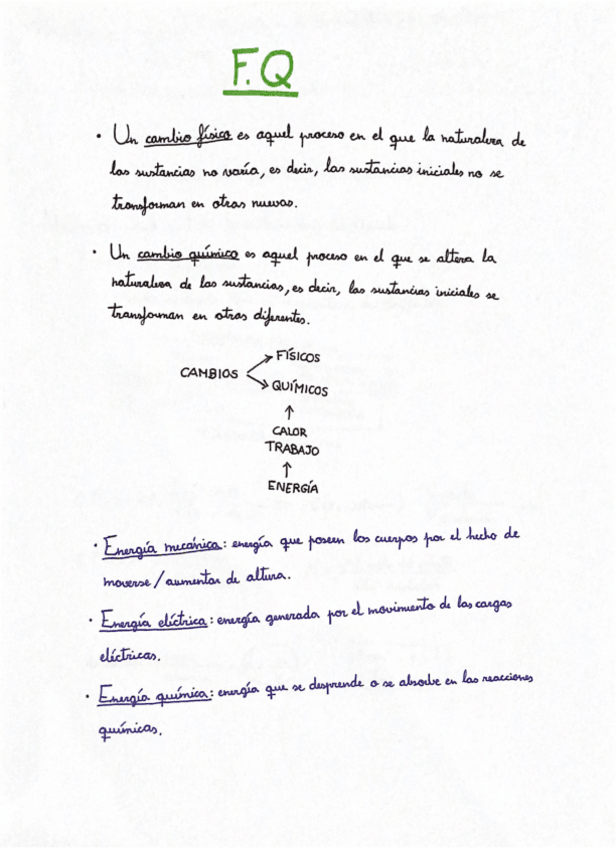 F.Q
· Un cambio físico es aquel proceso en el que la naturaleza de
las sustancias no varía, es decir, las sustancias iniciales no se
transforman en otras nuevas.
· Un cambio químico es aquel proceso en el que se altera la
naturaleza de las sustancias, es decir, las sustancias iniciales se
transforman en otras diferentes.
CAMBIOS
FÍSICOS
QUÍMICOS
CALOR
TRABAJO
ENERGÍA
· Energía mecánica: energía que poseen los cuerpos por el hecho de
moverse / aumentar de altura.
· Energía eléctrica: energía generada por el movimiento de las cargas
eléctricas.
· Energía química: energía que se desprende o se absorbe en las reacciones
químicas.